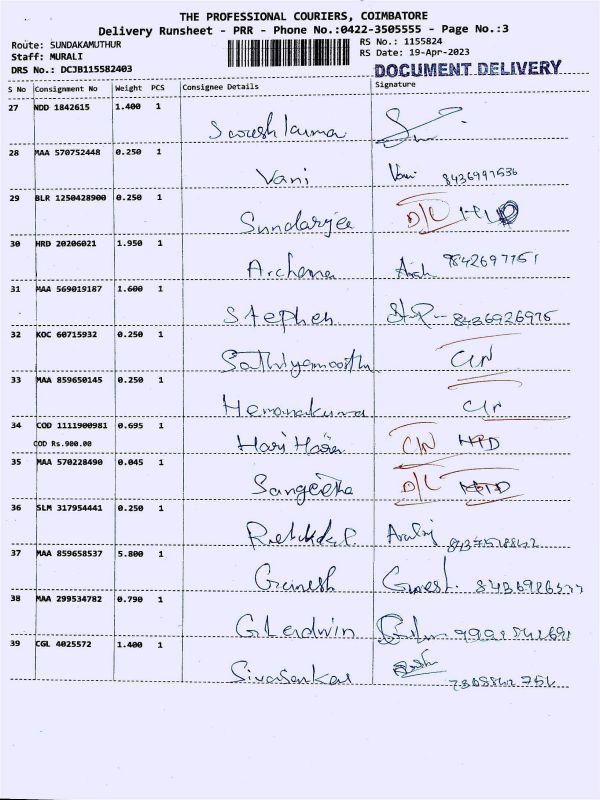 THE PROFESSIONAL COURIERS, COIMBATORE
Delivery Runsheet - PRR - Phone No.:0422-3505555 - Page No.:3
Route: SUNDAKAMUTHUR RS No.: 1155824
Staff: MURALI RS Date: 19-Apr-2023
DRS No.: DCJB115582403 DOCUMENT DELIVERY
S No Consignment No Weight PCS Consignee Details Signature
27 NDD 1842615 1.400 1
28 MAA 570752448 0.250 1
Vani Vani
29 BLR 1250428900 0.250 1
D/L
30 HRD 20206021 1.950 1
Archana 9842697751
31 MAA 569019187 1.600 1
Stephen 8436926975
32 KOC 60715932 0.250 1
33 MAA 859650145 0.250 1
34 COD 1111900981 0.695 1
COD Rs.900.00 Hari Haran
35 MAA 570228490 0.045 1
Sangeetha D/L
36 SLM 317954441 0.250 1
37 MAA 859658537 5.800 1
Ganesh
38 MAA 299534782 0.790 1
Gladwin
39 CGL 4025572 1.400 1
Sivasankar